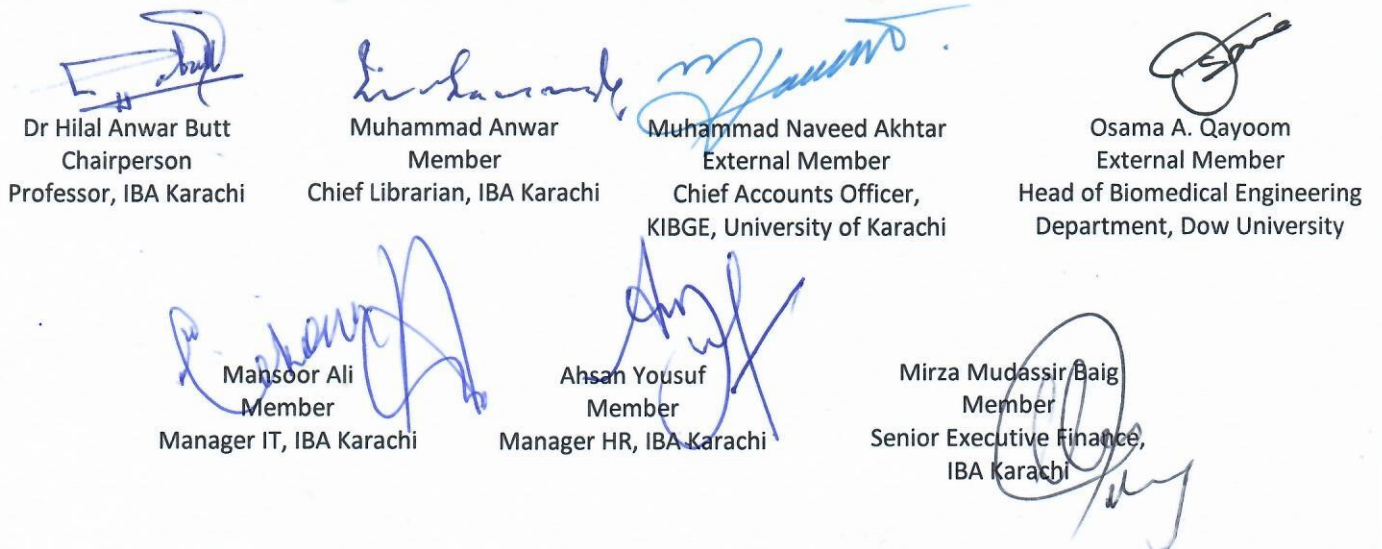 Dr Hilal Anwar Butt
Chairperson
Professor, IBA Karachi
Muhammad Anwar
Member
Chief Librarian, IBA Karachi
Muhammad Naveed Akhtar
External Member
Chief Accounts Officer,
KIBGE, University of Karachi
Osama A. Qayoom
External Member
Head of Biomedical Engineering
Department, Dow University
Mansoor Ali
Member
Manager IT, IBA Karachi
Ahsan Yousuf
Member
Manager HR, IBA Karachi
Mirza Mudassir Baig
Member
Senior Executive Finance,
IBA Karachi